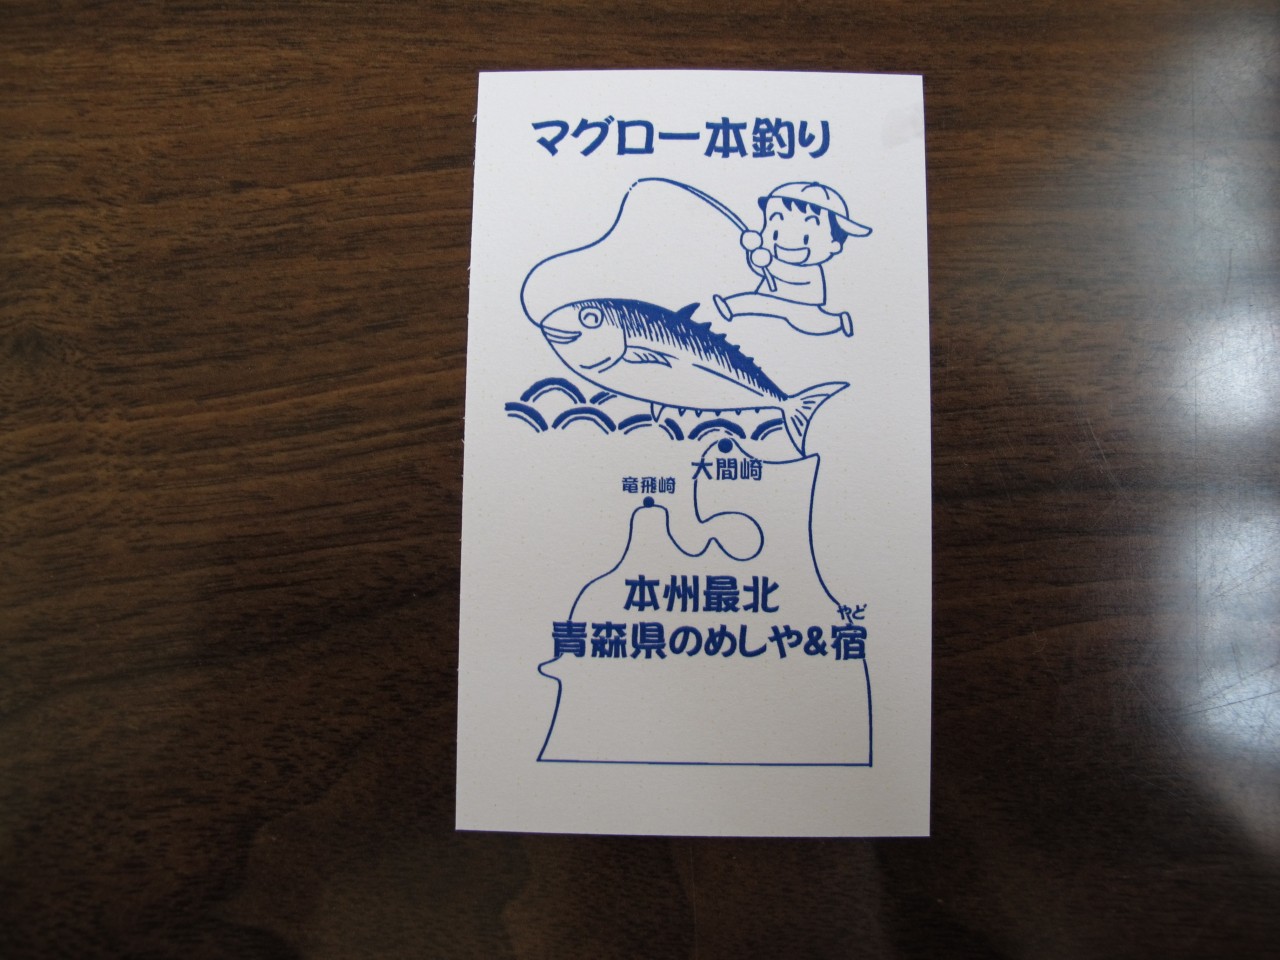 マグロ一本釣り
大間崎
竜飛崎
本州最北
やど
青森県のめしや&宿